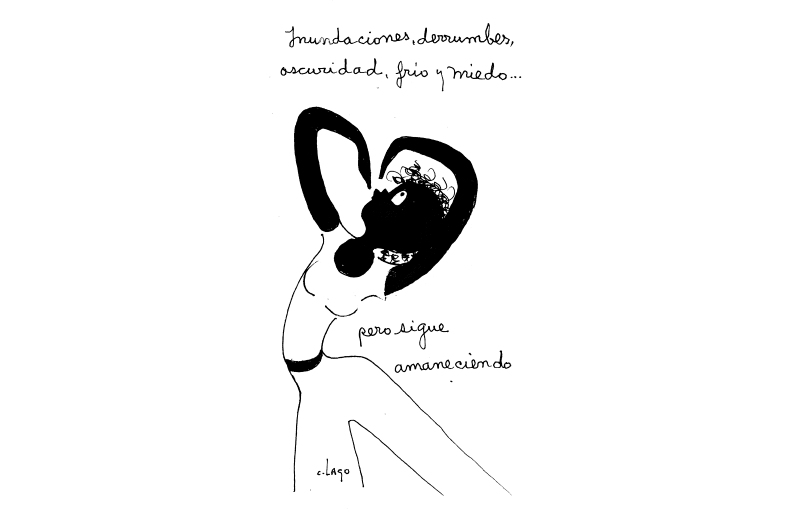 Inundaciones, derrumbes,
oscuridad, frío y miedo...
pero sigue
amaneciendo
c. LAGO